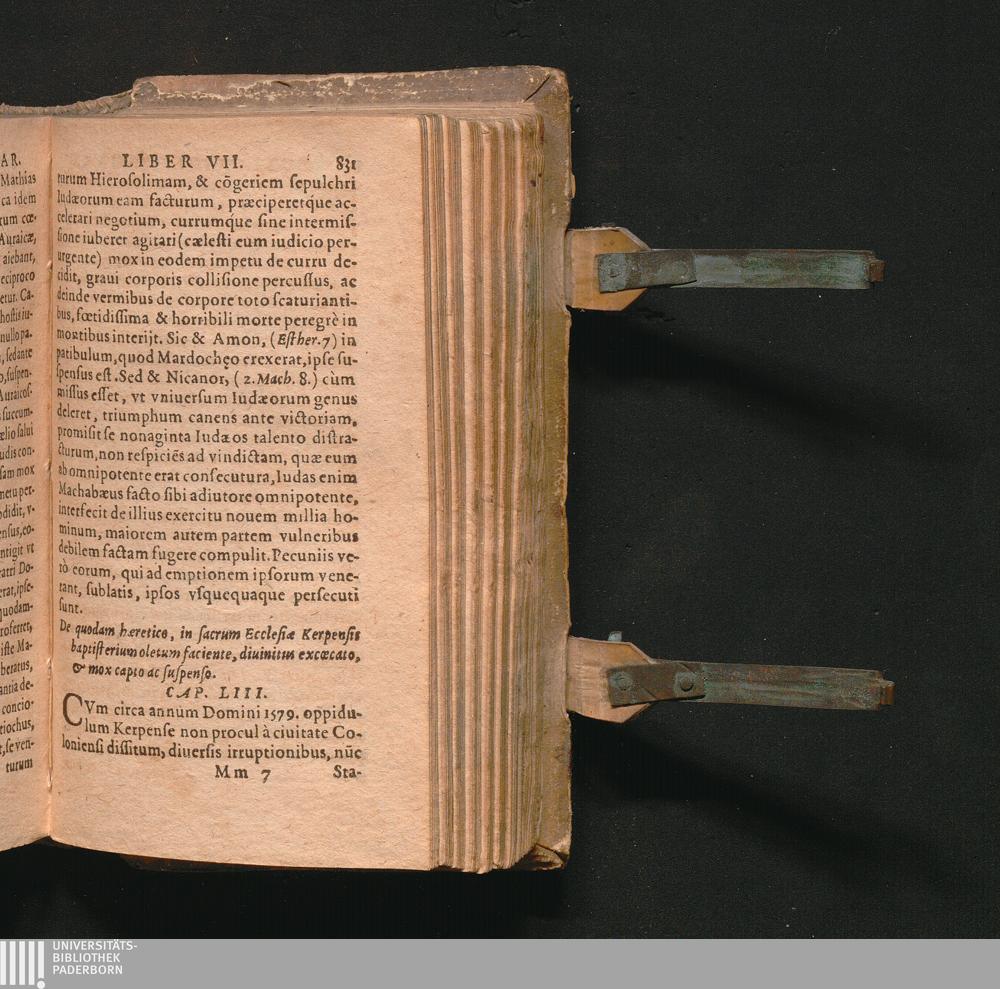 AR.
Mathias
ca idem
rum cœ-
Auraicæ,
aiebant,
eciproco
etur. Ca-
hostis iu-
nullo pa-
, sed ante
o, suspen-
Auraicos-
succum-
ælio salui
udis con-
sam mox
metu per-
odidit, v-
ensus, eo-
ntigit vt
atri Do-
erat, ipse-
quodam-
roferret,
iste Ma-
beratus,
antia de-
concio-
tiochus,
t, se ven-
turum
LIBER VII. 831
turum Hierosolimam, & cōgeriem sepulchri
Iudæorum eam facturum, præciperetq́ue ac-
celerari negotium, currumq́ue sine intermis-
sione iuberet agitari (cælesti eum iudicio per-
urgente) mox in eodem impetu de curru de-
cidit, graui corporis collisione percussus, ac
deinde vermibus de corpore toto scaturianti-
bus, fœtidissima & horribili morte peregrè in
montibus interijt. Sic & Amon, (Esther. 7) in
patibulum, quod Mardochęo erexerat, ipse su-
spensus est. Sed & Nicanor, (2. Mach. 8.) cùm
missus esset, vt vniuersum Iudæorum genus
deleret, triumphum canens ante victoriam,
promisit se nonaginta Iudæos talento distra-
cturum, non respiciēs ad vindictam, quæ eum
ab omnipotente erat consecutura, Iudas enim
Machabæus facto sibi adiutore omnipotente,
interfecit de illius exercitu nouem millia ho-
minum, maiorem autem partem vulneribus
debilem factam fugere compulit. Pecuniis ve-
rò eorum, qui ad emptionem ipsorum vene-
rant, sublatis, ipsos vsquequaque persecuti
sunt.
De quodam hæretico, in sacrum Ecclesiæ Kerpensis
baptisterium oletum faciente, diuinitus excæcato,
& mox capto ac suspenso.
CAP. LIII.
CVm circa annum Domini 1579. oppidu-
lum Kerpense non procul à ciuitate Co-
loniensi dissitum, diuersis irruptionibus, nūc
Mm 7 Sta-
UNIVERSITÄTS-
BIBLIOTHEK
PADERBORN